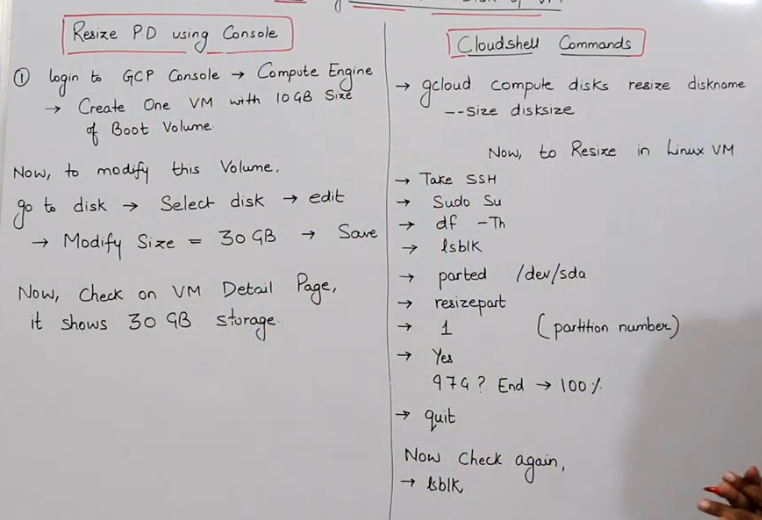 Disk of VM
Resize PD using Console
① login to GCP Console → Compute Engine
→ Create One VM with 10 GB Size
of Boot Volume.
Now, to modify this Volume,
go to disk → Select disk → edit
→ Modify Size = 30 GB → Save
Now, Check on VM Detail Page,
it shows 30 GB storage.
Cloudshell Commands
→ gcloud compute disks resize diskname
--size disksize
Now, to Resize in Linux VM
→ Take SSH
→ Sudo Su
→ df -Th
→ lsblk
→ parted /dev/sda
→ resizepart
→ 1 (partition number)
→ Yes
97G? End → 100%
→ quit
Now Check again,
→ lsblk